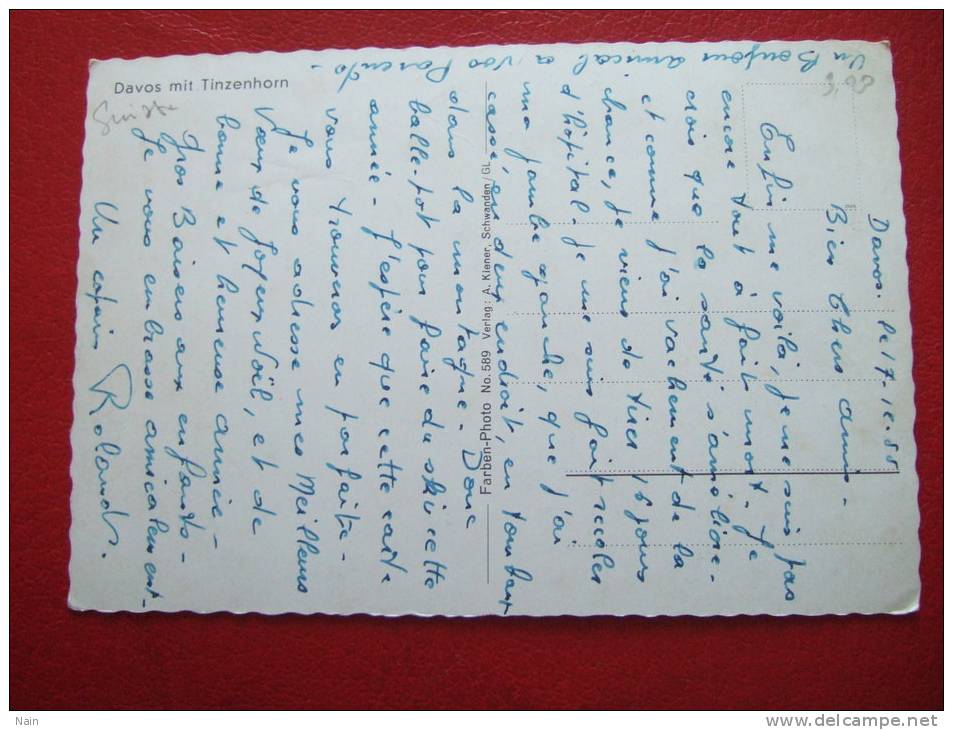 Davos. le 17-12-55
Bien Chers amis -
Enfin me voilà, je ne suis pas
encore tout à fait mort - Je
crois que la santé s'améliore -
et comme j'ai vachement de la
chance, je viens de tirer 16 jours
d'hôpital - Je me suis fait recoler
ma jambe gauche, que j'ai
cassé, en deux endroit, en tombant
dans la montagne - Donc
balle-pot pour faire du ski cette
année - J'espère que cette carte
vous trouveras en parfaite -
Je vous adresse mes Meilleurs
Vœux de Joyeux Noël, et de
bonne et heureuse année -
Gros Baisers aux enfants -
Je vous embrasse amicalement -
Un copain Rolands.
Un Bonjour amical a vos Parents -
Davos mit Tinzenhorn
Suisse
Farben-Photo No. 589 Verlag: A. Kiener, Schwanden/GL
Nain
www.delcampe.net